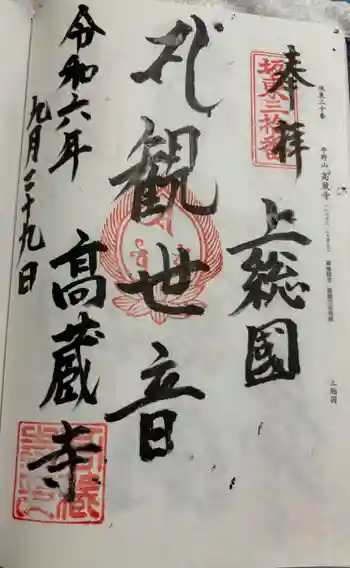 坂東三十番
平野山 高蔵寺
上総国
坂東三拾番
奉拝
上総國
札観世音
高蔵寺
令和六年
九月二十九日